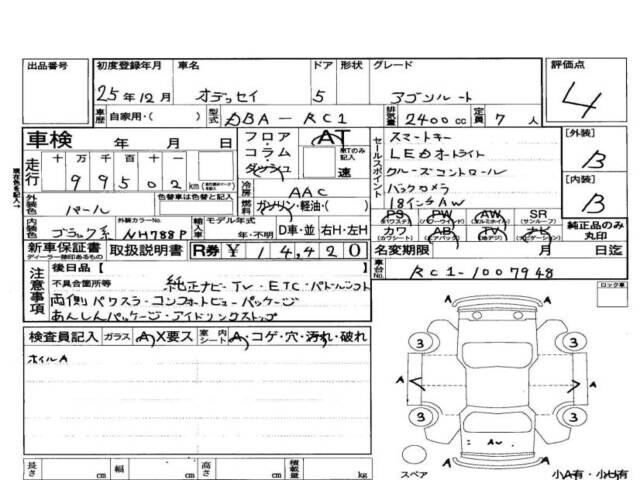 出品番号 初度登録年月 車名 ドア 形状 グレード 評価点
25年12月 オデッセイ 5 アブソルート 4
車歴 自家用・( ) 型式 DBA-RC1 排気量 2400cc 定員 7人
車検 年 月 日 フロア・ AT スマートキー [外装]
走行 十 万 千 百 十 コラム・ MTのみ記入 セールスポイント LEDオートライト B
99502 km ダッシュ 速 クルーズコントロール
冷房 AAC バックカメラ [内装]
外装色 パール 色替車は色替と記入 燃料 ガソリン・軽油・( 18インチAW B
現在色を記入→
内装色 ブラック系 外装カラーNo. NH788P 輸入車 モデル年式 年・不明 D車・並 右H・左H
PS PW AW SR
(パワステ) (パワーウインド) (アルミホイル) (サンルーフ)
カワ AB TV ナビ 純正品のみ丸印
(カワシート) (エアバック) (地デジ) (ナビゲーション)
新車保証書 取扱説明書 R券 ¥14,420 名変期限 月 日迄
ディーラー捺印あるもの
後日品[ ] 車台No. RC1-1007948
注意事項 不具合箇所等 純正ナビ・TV・ETC・パドルシフト ロック車
両側パワスラ・コンフォートビューパッケージ
あんしんパッケージ・アイドリングストップ
検査員記入 ガラス A X要ス 室内シート A・コゲ・穴・汚れ・破れ
ホイルA
A
3 3
A A
3 3
A
スペア
長さ cm 幅 cm 高さ cm 積載量 kg 小A有・小U有